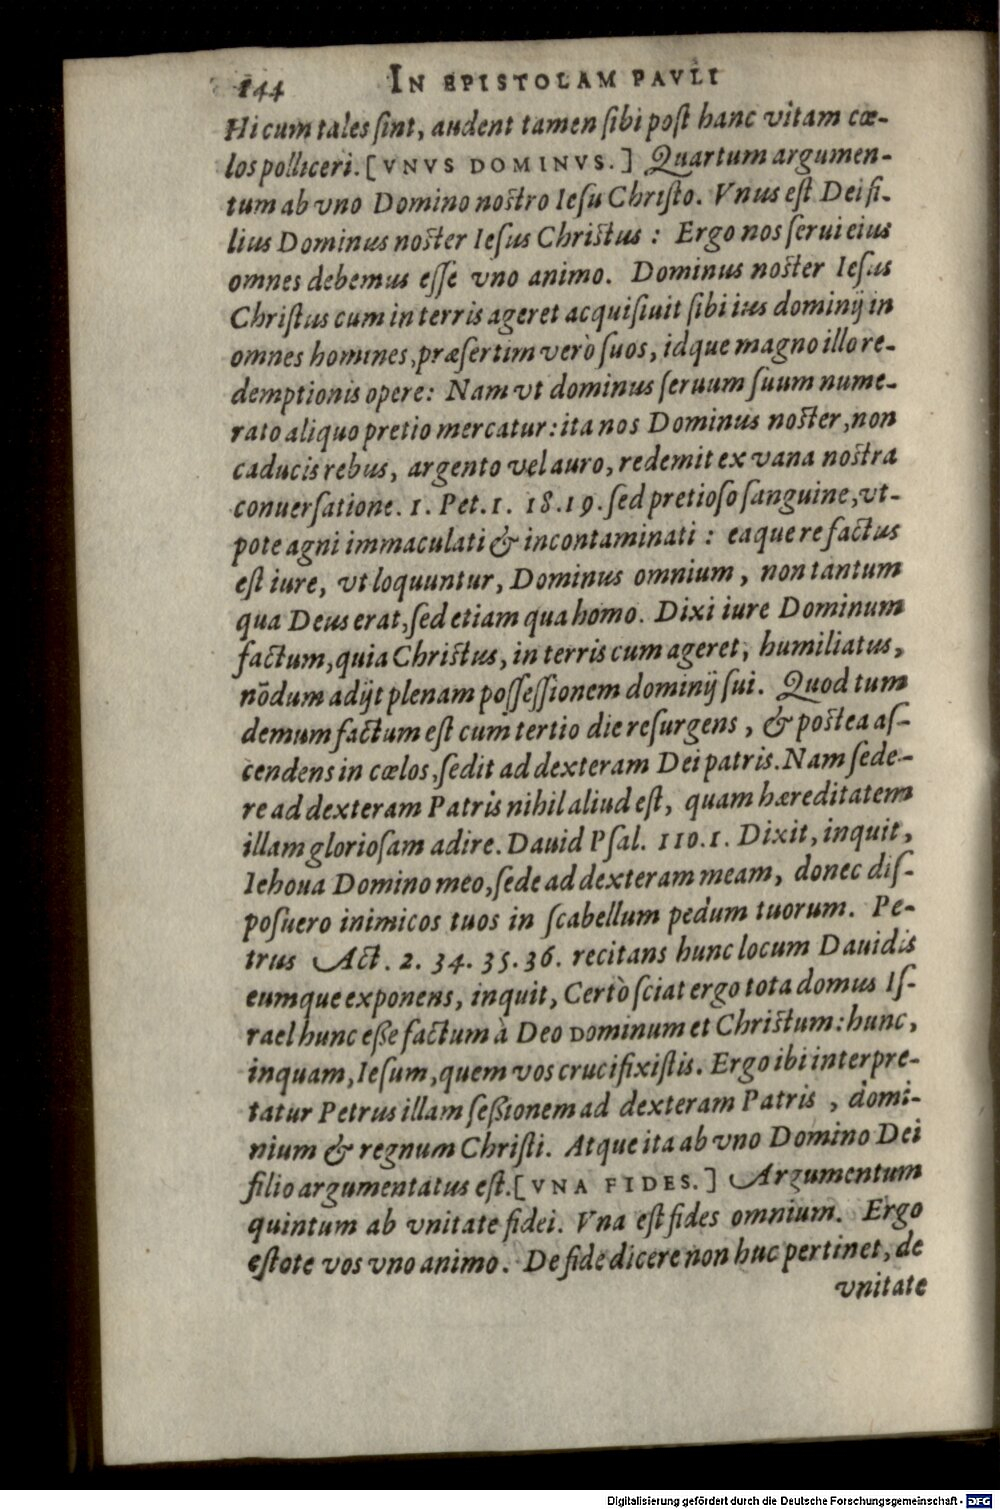 144 IN EPISTOLAM PAVLI
Hi cum tales ſint, audent tamen ſibi poſt hanc vitam cœ-
los polliceri. [VNVS DOMINVS.] Quartum argumen-
tum ab vno Domino noſtro Ieſu Chriſto. Vnus eſt Dei fi-
lius Dominus noſter Ieſus Chriſtus : Ergo nos ſerui eius
omnes debemus eſſe vno animo. Dominus noſter Ieſus
Chriſtus cum in terris ageret acquiſiuit ſibi ius dominij in
omnes homines, præſertim verò ſuos, idque magno illo re-
demptionis opere: Nam vt dominus ſeruum ſuum nume-
rato aliquo pretio mercatur: ita nos Dominus noſter, non
caducis rebus, argento vel auro, redemit ex vana noſtra
conuerſatione. 1. Pet. 1. 18. 19. ſed pretioſo ſanguine, vt-
pote agni immaculati & incontaminati : eaque re factus
eſt iure, vt loquuntur, Dominus omnium, non tantum
qua Deus erat, ſed etiam qua homo. Dixi iure Dominum
factum, quia Chriſtus, in terris cum ageret, humiliatus,
nōdum adijt plenam poſſeſſionem dominij ſui. Quod tum
demum factum eſt cum tertio die reſurgens, & poſtea aſ-
cendens in cœlos, ſedit ad dexteram Dei patris. Nam ſede-
re ad dexteram Patris nihil aliud eſt, quam hæreditatem
illam glorioſam adire. Dauid Pſal. 110. 1. Dixit, inquit,
Iehoua Domino meo, ſede ad dexteram meam, donec diſ-
poſuero inimicos tuos in ſcabellum pedum tuorum. Pe-
trus Act. 2. 34. 35. 36. recitans hunc locum Dauidis
eumque exponens, inquit, Certò ſciat ergo tota domus Iſ-
rael hunc eße factum à Deo Dominum et Chriſtum: hunc,
inquam, Ieſum, quem vos crucifixiſtis. Ergo ibi interpre-
tatur Petrus illam ſeßionem ad dexteram Patris, domi-
nium & regnum Chriſti. Atque ita ab vno Domino Dei
filio argumentatus eſt. [VNA FIDES.] Argumentum
quintum ab vnitate fidei. Vna eſt fides omnium. Ergo
eſtote vos vno animo. De fide dicere non huc pertinet, de
vnitate
Digitalisierung gefördert durch die Deutsche Forschungsgemeinschaft - DFG